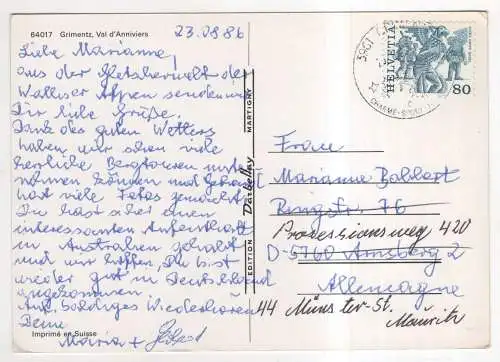 64017 Grimentz, Val d'Anniviers
23.08.86
Liebe Marianne,
aus der Gletscherwelt der
Walliser Alpen senden wir
Dir liebe Grüße.
Dank des guten Wetters
haben wir schon viele
herrliche Bergtouren unter-
nehmen können und Gerhard
hast viele Fotos gemacht.
Du hast sicher einen
interessanten Aufenthalt
in Australien gehabt
und wir hoffen, Du bist
wieder gut in Deutschland
angekommen.
Auf baldiges Wiederhören
Deine
Maria +
Imprimé en Suisse
EDITION Darbellay MARTIGNY
HELVETIA
80
3961
Frau
Marianne Bohbert
Ringstr. 76
Prozessionsweg 420
D-5760 Arnsberg 2
Allemagne
44 Münster-St.
Mauritz